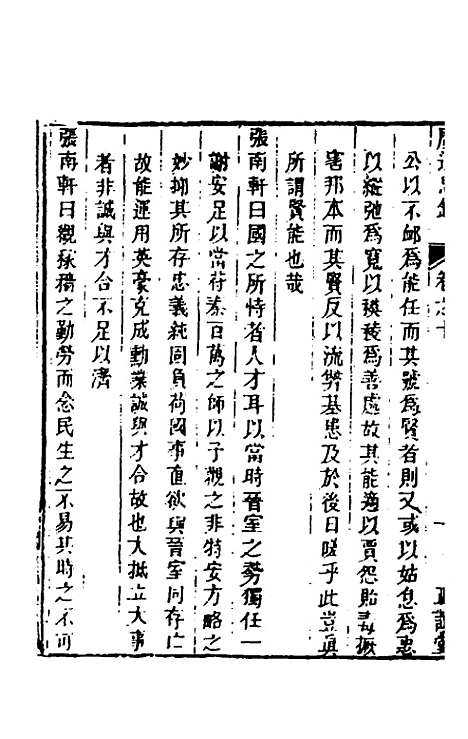 廣近思錄 卷之十 一 正誼堂
公以不卹爲能任而其號爲賢者則又或以姑息爲惠
以縱弛爲寬以模稜爲善處故其能適以賈怨貽毒撥
邦本而其賢反以流弊基患及於後日嗟乎此豈眞
所謂賢能也哉
張南軒曰國之所恃者人才耳以當時晉室之勢獨任一
謝安足以當苻秦百萬之師以予觀之非特安方略之
妙抑其所存忠義純固負荷國事直欲與晉室同存亡
故能運用英豪克成勳業誠與才合故也大抵立大事
者非誠與才合不足以濟
張南軒曰觀稼穡之勤勞而念民生之不易其時之不可